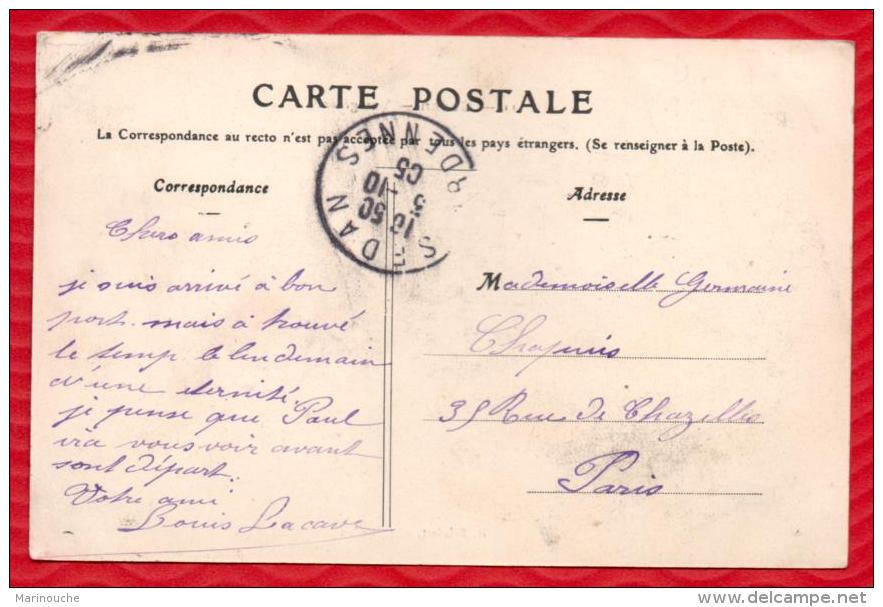 CARTE POSTALE
La Correspondance au recto n'est pas acceptée par tous les pays étrangers. (Se renseigner à la Poste).
Correspondance
Chers amis
je suis arrivé à bon
port. mais à trouvé
le temp le lendemain
d'une éternité.
je pense que Paul
ira vous voir avant
sont départ.
Votre ami
Louis Lacave
SEDAN ARDENNES
16 50
5 -10
05
Adresse
Mademoiselle Germaine
Chapuis
35 Rue de Chazelles
Paris
Marinouche
delcampe.net